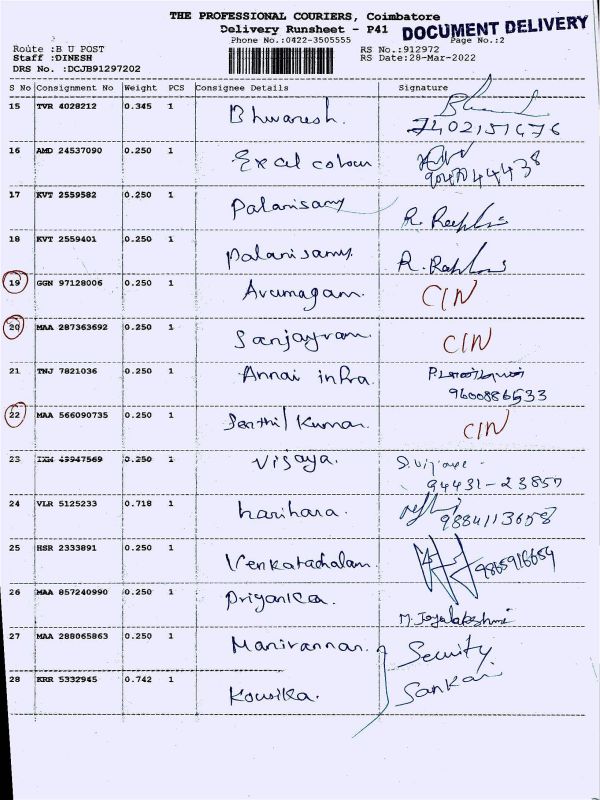 THE PROFESSIONAL COURIERS, Coimbatore
Delivery Runsheet - P41
DOCUMENT DELIVERY
Phone No.:0422-3505555
Page No.:2
Route :B U POST
RS No.:912972
Staff :DINESH
RS Date:28-Mar-2022
DRS No. :DCJB91297202
S No Consignment No Weight PCS Consignee Details Signature
15 TVR 4028212 0.345 1 Bhuvanesh.
7402151676
16 AMD 24537090 0.250 1 Excel colour
9047044438
17 KVT 2559582 0.250 1 Palanisamy
18 KVT 2559401 0.250 1 Palanisamy.
19 GGN 97128006 0.250 1 Arumagam. CIN
20 MAA 287363692 0.250 1 Sanjayram. CIN
21 TNJ 7821036 0.250 1 Annai infra.
9600886533
22 MAA 566090735 0.250 1 Senthil Kumar. CIN
23 IXM 49947569 0.250 1 Vijaya. S. Vijaya
94431-23857
24 VLR 5125233 0.718 1 harihara.
9884113658
25 HSR 2333891 0.250 1 Venkatachalam. 9865916654
26 MAA 857240990 0.250 1 Priyanka. M. Jayalakshmi
27 MAA 288065863 0.250 1 Manivannan. Security
28 KRR 5332945 0.742 1 Kowsika. Sankar